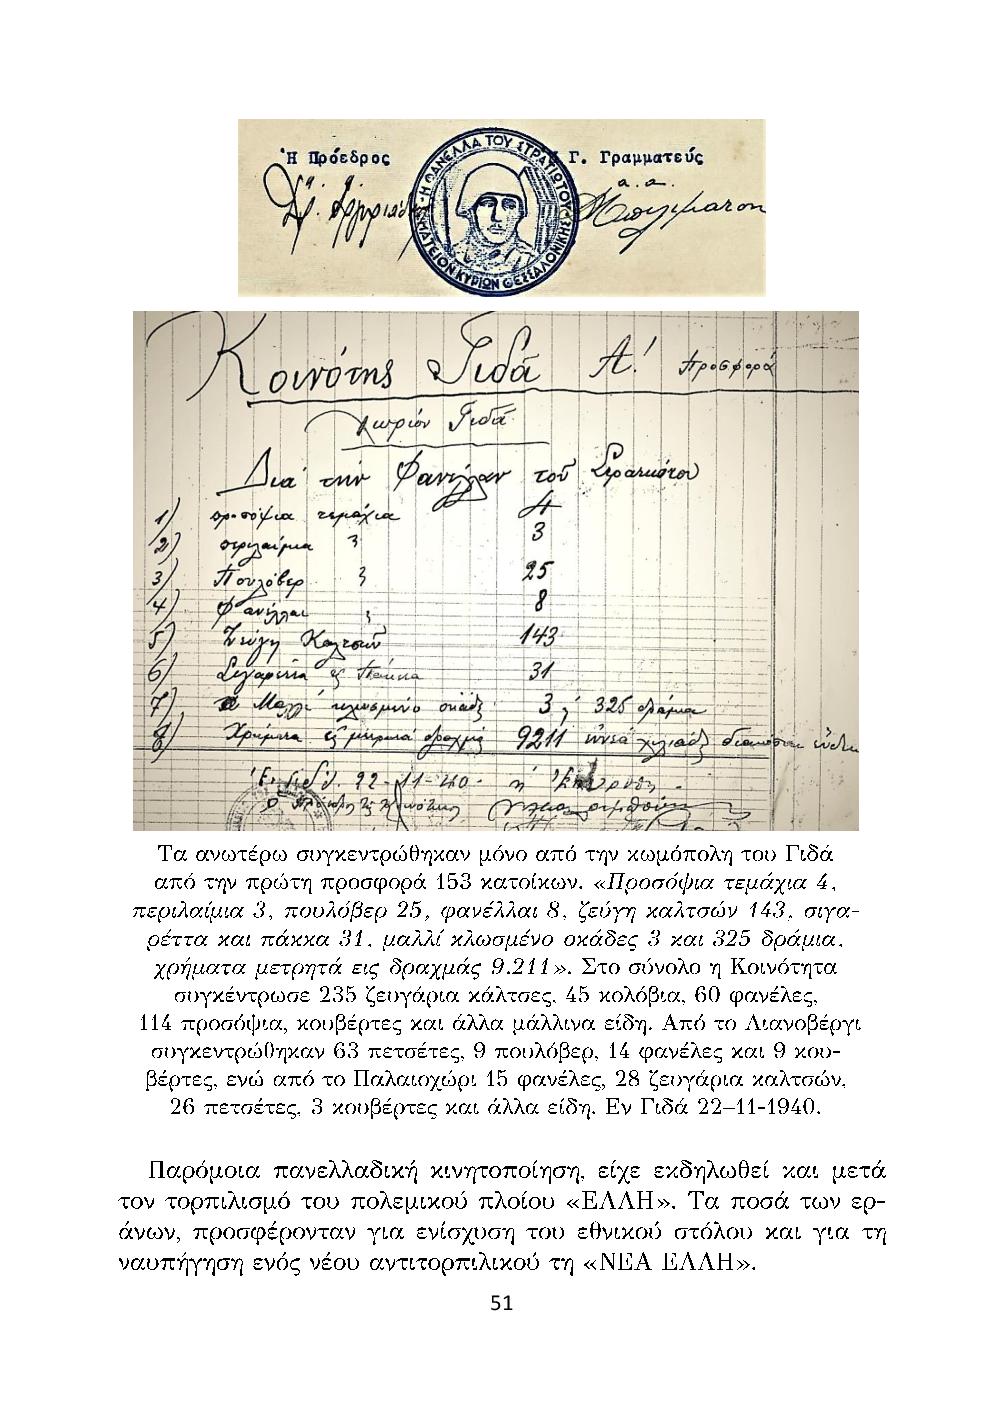 Ἡ Πρόεδρος
Γ. Γραμματεύς
α.α.
Η ΦΑΝΕΛΛΑ ΤΟΥ ΣΤΡΑΤΙΩΤΟΥ
ΚΥΡΙΩΝ ΘΕΣΣΑΛΟΝΙΚΗΣ
Κοινότης Γιδᾶ Α! προσφορά
χωρίον Γιδᾶ
Διά την Φανέλλαν τοῦ Στρατιώτου
1) προσόψια τεμάχια 4
2) περιλαίμια 3 3
3) Πουλόβερ 3 25
4) Φανέλλαι 3 8
5) Ζεύγη Καλτσῶν 143
6) Σιγαρέττα εἰς Πάκκα 31
7) Μαλλί κλωσμένο οκάδες 3, 325 δράμια
8) Χρήματα εἰς μετρητά δραχμάς 9211 ἐννέα χιλιάδες διακόσιαι ἕνδεκα
Ἐν Γιδᾷ 22-11-40 ἡ Ἐπιτροπή
Τα ανωτέρω συγκεντρώθηκαν μόνο από την κωμόπολη του Γιδά
από την πρώτη προσφορά 153 κατοίκων. «Προσόψια τεμάχια 4,
περιλαίμια 3, πουλόβερ 25, φανέλλαι 8, ζεύγη καλτσών 143, σιγα-
ρέττα και πάκκα 31, μαλλί κλωσμένο οκάδες 3 και 325 δράμια,
χρήματα μετρητά εις δραχμάς 9.211». Στο σύνολο η Κοινότητα
συγκέντρωσε 235 ζευγάρια κάλτσες, 45 κολόβια, 60 φανέλες,
114 προσόψια, κουβέρτες και άλλα μάλλινα είδη. Από το Λιανοβέργι
συγκεντρώθηκαν 63 πετσέτες, 9 πουλόβερ, 14 φανέλες και 9 κου-
βέρτες, ενώ από το Παλαιοχώρι 15 φανέλες, 28 ζευγάρια καλτσών,
26 πετσέτες, 3 κουβέρτες και άλλα είδη. Εν Γιδά 22–11-1940.
Παρόμοια πανελλαδική κινητοποίηση, είχε εκδηλωθεί και μετά
τον τορπιλισμό του πολεμικού πλοίου «ΕΛΛΗ». Τα ποσά των ερ-
άνων, προσφέρονταν για ενίσχυση του εθνικού στόλου και για τη
ναυπήγηση ενός νέου αντιτορπιλικού τη «ΝΕΑ ΕΛΛΗ».
51